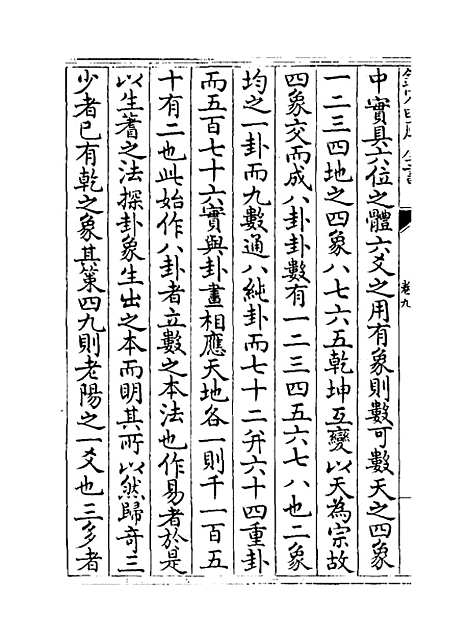 欽定四庫全書
卷九
中實具六位之體六爻之用有象則數可數天之四象
一二三四地之四象八七六五乾坤互變以天為宗故
四象交而成八卦卦數有一二三四五六七八也二象
均之一卦而九數通八純卦而七十二并六十四重卦
而五百七十六實與卦畫相應天地各一則千一百五
十有二也此始作八卦者立數之本法也作易者於是
以生蓍之法探卦象生出之本而明其所以然歸奇三
少者已有乾之象其策四九則老陽之一爻也三多者